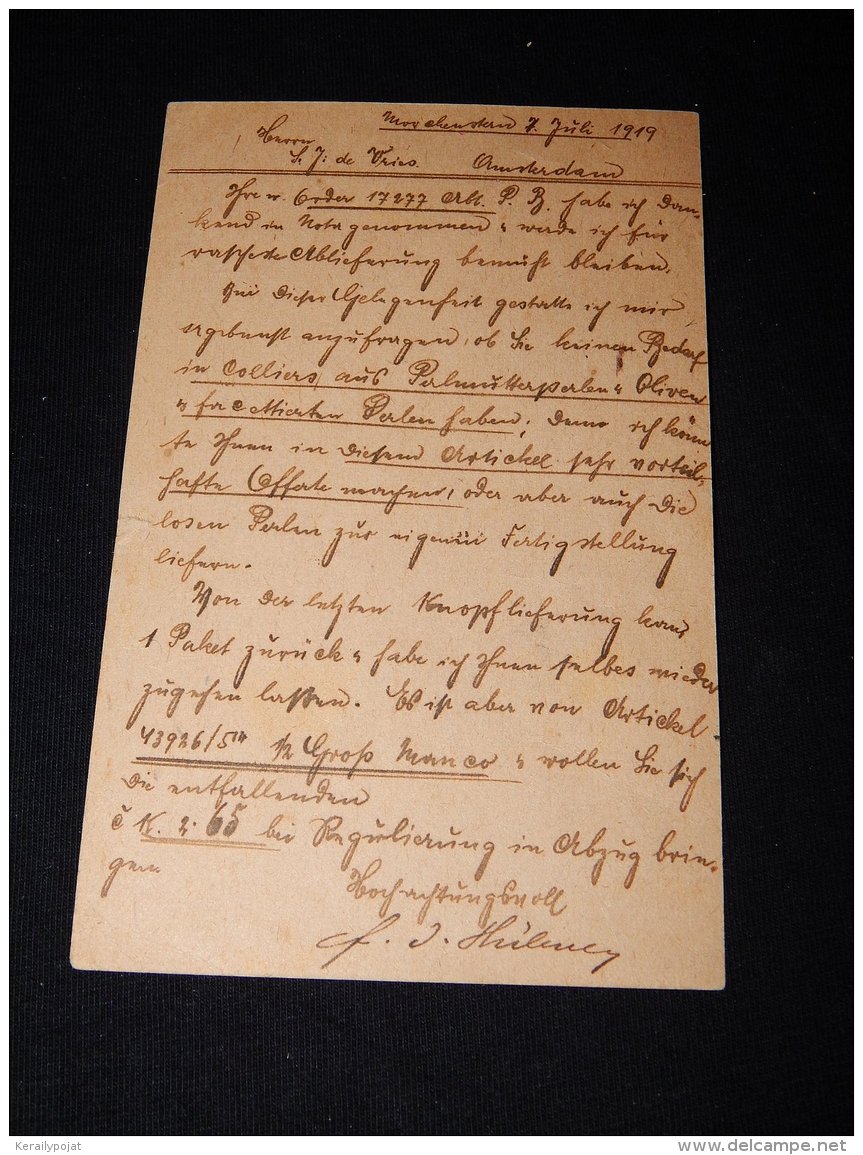 Morchenstern 7. Juli 1919
Herrn
S. J. de Vries. Amsterdam
Ihre w. Order 17277 Abt. P. B. habe ich dan-
kend in Nota genommen u werde ich für
rascheste Ablieferung bemüht bleiben.
Bei dieser Gelegenheit gestatte ich mir
ergebenst anzufragen, ob Sie keinen Bedarf
in Colliers, aus Perlmutterperlen u Oliven
u facettierten Perlen haben; denn ich könn
te Ihnen in diesem Artickel sehr vorteil-
hafte Offerte machen, oder aber auch die
losen Perlen zur eigenen Fertigstellung
liefern.
Von der letzten Knopflieferung kam
1 Paket zurück u habe ich Ihnen selbes wieder
zugehen lassen. Es ist aber von Artickel
43926/5''' 1/2 Groß Manco u wollen Sie sich
die entfallenden
č K. 2.65 bei Regulierung in Abzug brin-
gen.
Hochachtungsvoll
Kerailypojat
www.delcampe.net